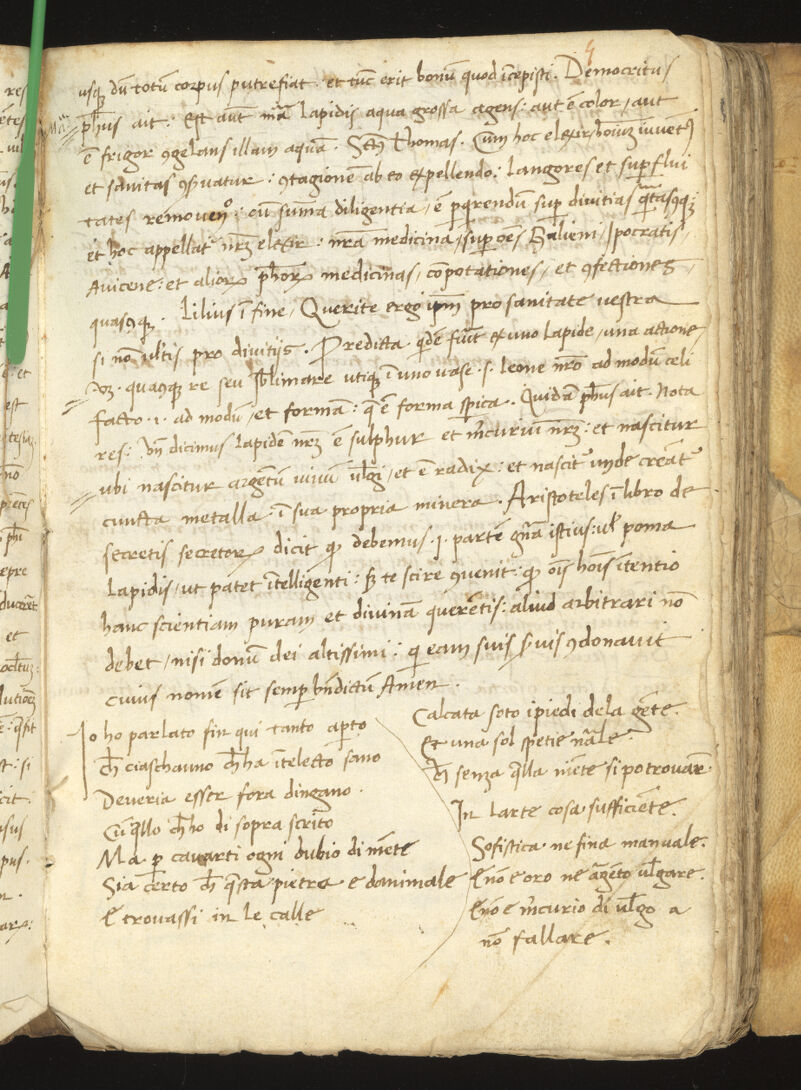 usq; dũ totũ corpus putrefiat · et tũc erit bonũ quod ĩcepisti. Democritus
ph̃us ait: Est aũt mã Lapidis aqua grossa agens: aut ẽ color, aut
ẽ frigor ꝯgelans illam aquã. Thomas. Cum hoc
et sanitas ꝯs̃uatur: ꝯtagionẽ ab eo expellendo: Langores et sup̃flui
tates remouen: cũ sum̃a diligentia, ẽ ꝑq̃rendũ sup̃ diuitias
et hoc appellat nr̃ʒ elexir: nr̃a medicina, sup̃ oẽs Galieni, Ipocratis,
Auicene: et alioꝝ ph̃oꝝ medicinas, cõpotationes, et ꝯfectiones,
quascq;. Lilius ĩ fine, Querite ergo ip̃m pro sanitate vestra
si nõ ultis pro diuitijs. Predicta q̃dẽ fiũt ex uno Lapide, una actione,
quacq; re seu s̃blimare utiq; ĩ uno uase .s. leone nr̃o ad modũ celi
facto .i. ad modũ, et formã: q̃ ẽ forma sp̃ica. Quidã ph̃us ait. Nota
res: vñ dicimus Lapidẽ nr̃ʒ ẽ sulphur et m̃curiũ nr̃ʒ: et nascitur
ubi nascitur argẽtũ uiuũ ul̃gi, et ẽ radix: et nascit᷑ unde creãt᷑
cuncta metalla: ĩ sua propria minera. Aristoteles ĩ libro de
secretis secretoꝝ dicit ꝙ debemus .i. partẽ istius: ul̃ poma
Lapidis, ut patet ĩtelligenti: sʒ te scire ꝯuenit: ꝙ oĩs hoĩs ĩtentio
hanc scientiam puram et diuinã querẽtis: aliud arbitrari nõ
debet, nisi donũ dei altissimi: q̃ eam suis s̃uis ꝯdonauit
cuius nomẽ sit semp̃ bñdictũ Amen.
Io ho parlato fin qui tanto aperto
ch̃ ciaschauno ch̃ ha ĩtelecto sano
Deueria esser fora dingano.
Cũ q̃llo ch̃ ho di sopra scrito
Ma ꝑ cauarti ogni dubio di mẽte
Sia certo ch̃ q̃sta pietra e danimale
E trouassi in le calle
Calcata soto i piedi dela gẽte.
Et una sol spetie nãle
ch̃ senza q̃lla niẽte si po trouare
In larte cosa sufficiẽte.
Sofistica ne fina manuale.
E nõ e oro ne ãgẽto ul̃gare.
E nõ e m̃curio di ul̃go a
nõ fallare.